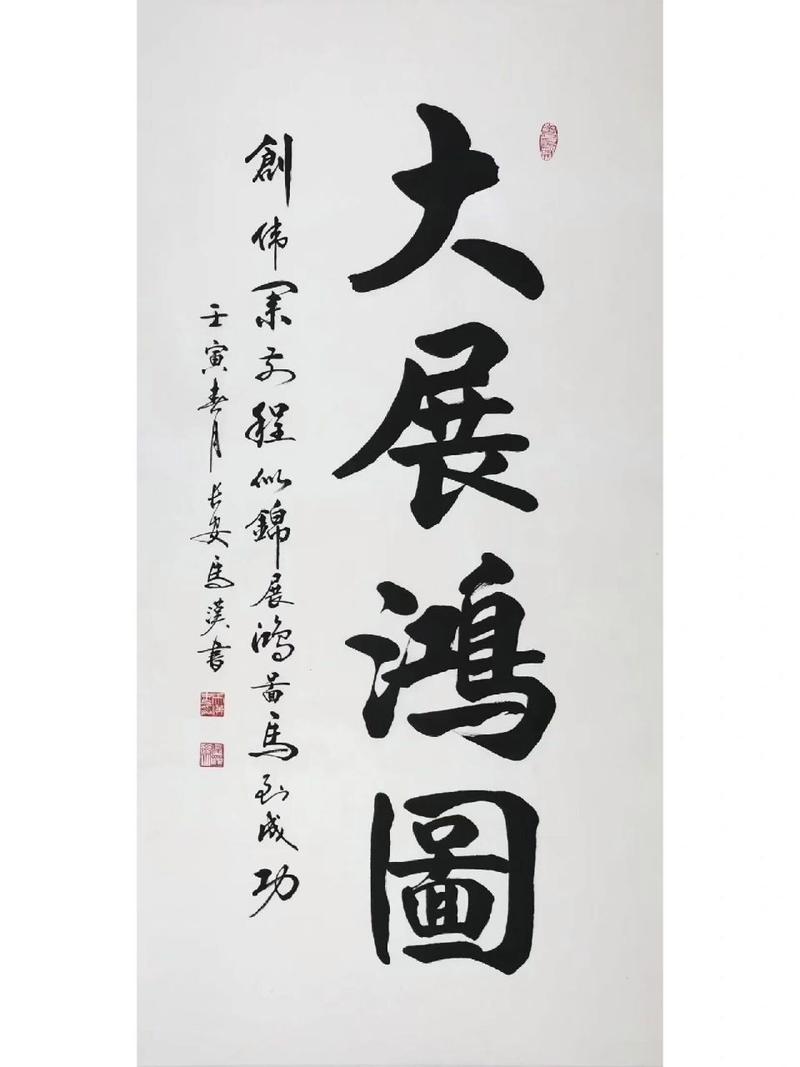 大展鴻圖
創伟業前程似錦展鴻图馬到成功
壬寅春月长安馬漢书